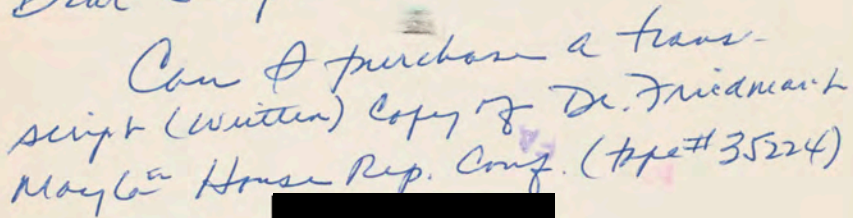 Dear
Can I purchase a trans-
script (written) Copy of Dr. Friedman's
May 6th House Rep. Conf. (tape #35224)